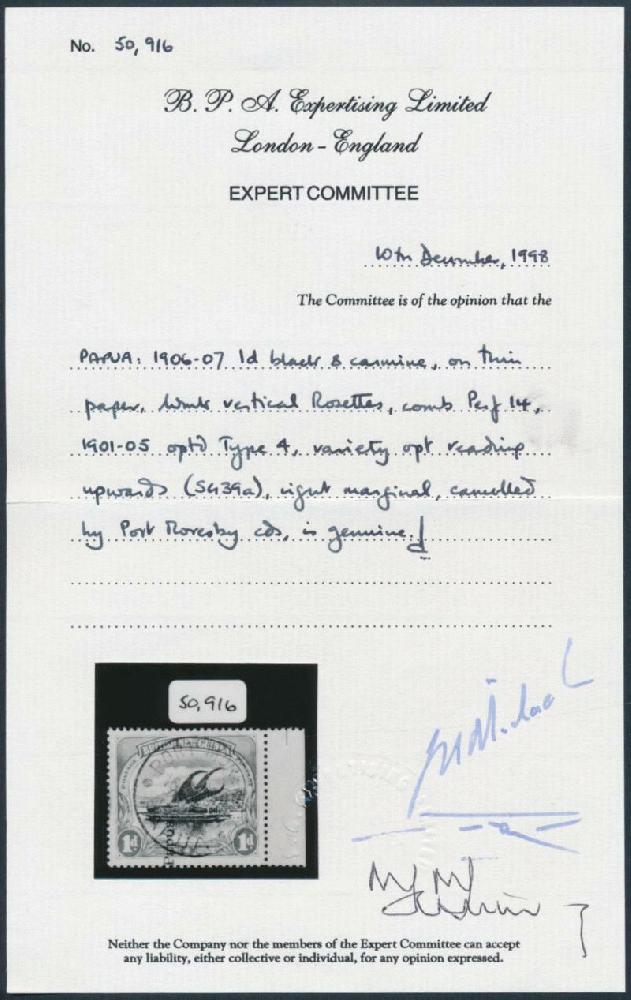 No. 50,916
B. P. A. Expertising Limited
London - England
EXPERT COMMITTEE
10th December, 1998
The Committee is of the opinion that the
PAPUA: 1906-07 1d black & carmine, on thin
paper, wmk vertical Rosettes, comb Perf 14,
1901-05 optd Type 4, variety opt reading
upwards (SG39a), right marginal, cancelled
by Port Moresby cds, is genuine.
50,916
1d 1d
Neither the Company nor the members of the Expert Committee can accept
any liability, either collective or individual, for any opinion expressed.